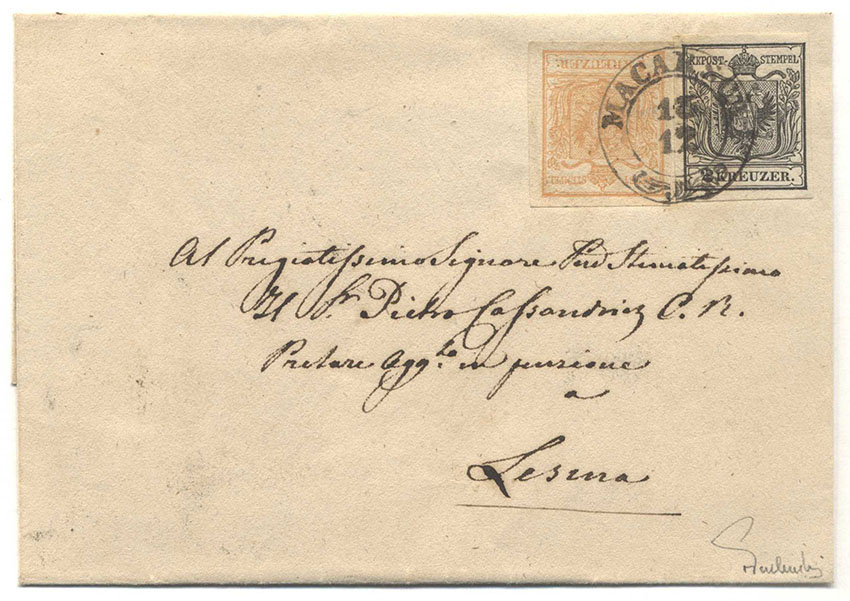 KREUZER
STEMPEL
MACAR
KK POST-STEMPEL
18
12
2 KREUZER.
Al Pregiatissimo Signore Pnd Stimatissimo
Il Sr. Pietro Cassandrich C. R.
Pretore Aggto. in pensione
a
Lesina